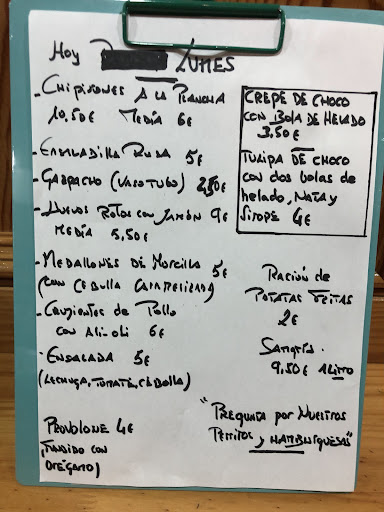 Hoy LUNES
- CHIPIRONES A LA PLANCHA
10,50€ MEDIA 6€
- ENSALADILLA RUSA 5€
- GAZPACHO (VASO TUBO) 2,50€
- HUEVOS ROTOS CON JAMÓN 9€
MEDIA 5,50€
- MEDALLONES DE MORCILLA 5€
(CON CEBOLLA CARAMELIZADA)
- CRUJIENTES DE POLLO
CON ALI-OLI 6€
- ENSALADA 5€
(LECHUGA, TOMATE, CEBOLLA)
PROVOLONE 4€
(FUNDIDO CON
ORÉGANO)
CREPE DE CHOCO
CON BOLA DE HELADO
3,50€
TULIPA DE CHOCO
CON dos bolas de
helado, NATA y
SIROPE 4€
RACIÓN DE
PATATAS FRITAS
2€
SANGRÍA
9,50€ 1 LITRO
"PREGUNTA POR NUESTROS
PERRITOS y HAMBURGUESAS"